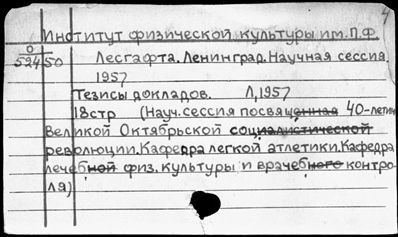 4
Институт физической культуры им. П.Ф.
0
52450 Лесгафта. Ленинград. Научная сессия.
1957
Тезисы докладов. Л, 1957
18стр (Науч. сессия посвященная 40-летию
Великой Октябрьской социалистической
революции. Кафедра легкой атлетики. Кафедра
лечебной физ. культуры и врачебного контро
ля)